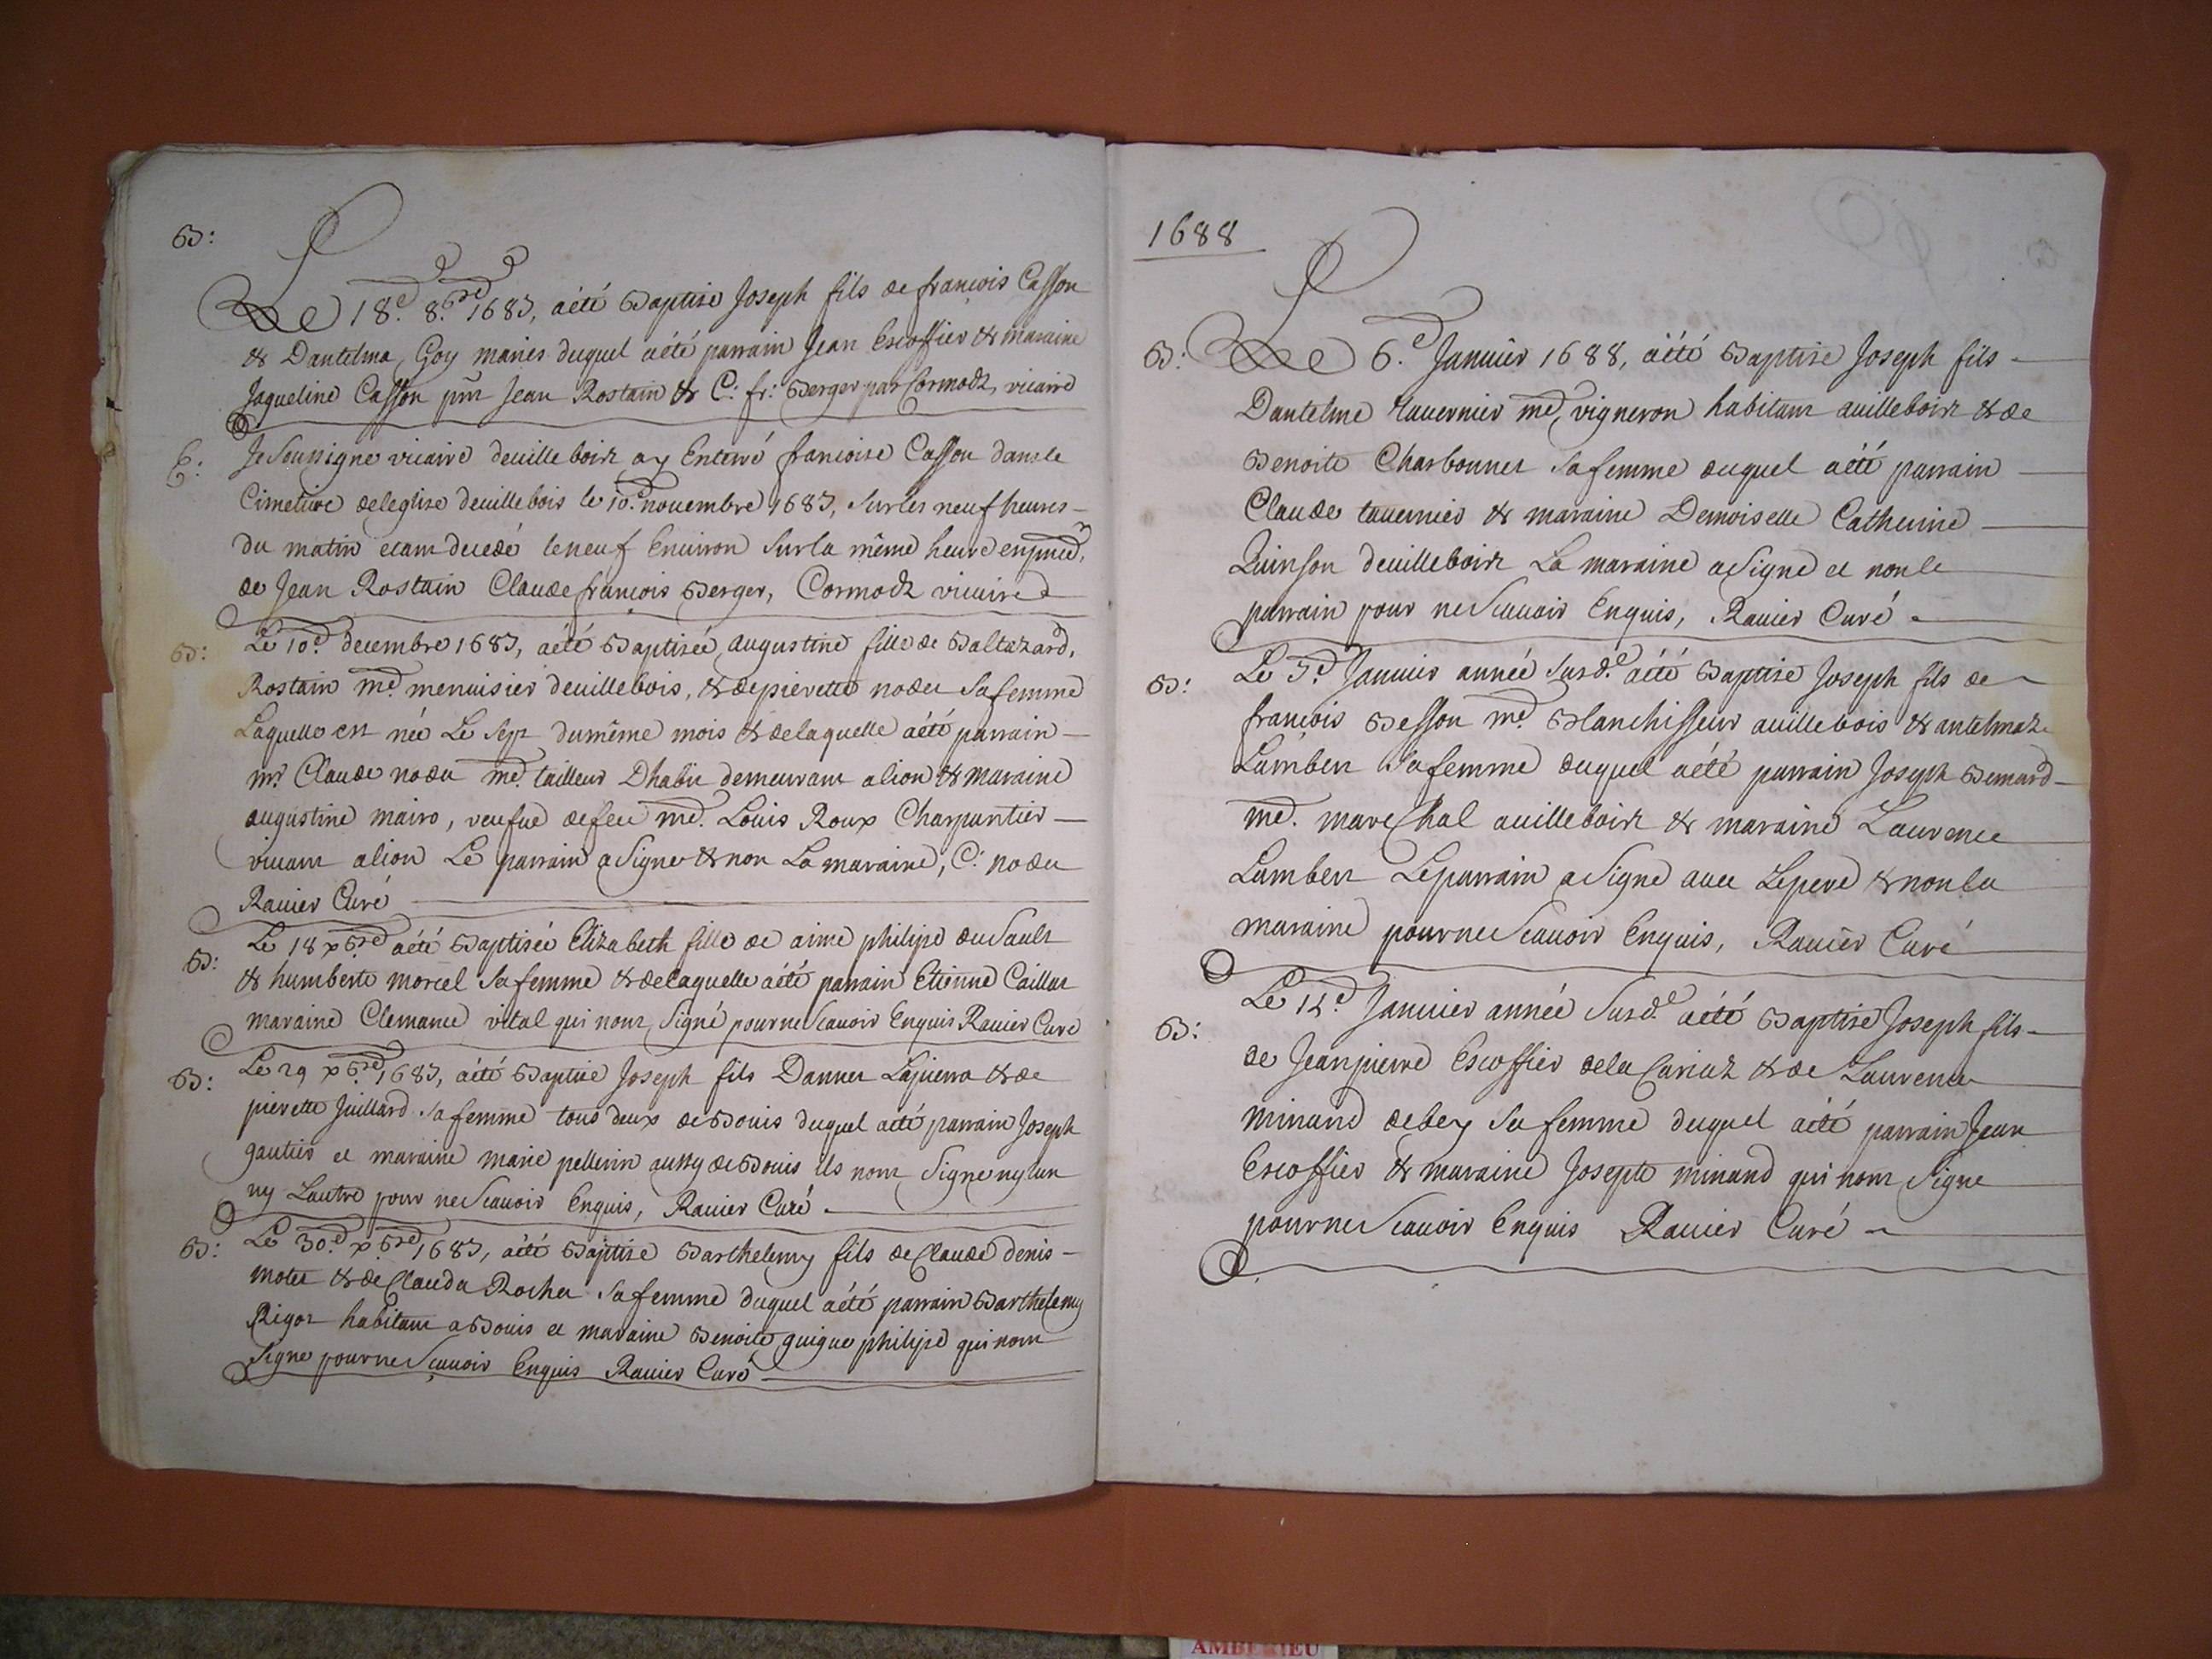 B:
Le 18.e 8.bre 1687, aété Baptisé Joseph fils de françois Casson
& Dantelma Goy mariés duquel aété parrain Jean Escoffier & maraine
Jaqueline Casson pnt Jean Rostain & C: fr: Berger par Cormodz, vicaire
E: Je Soussigne vicaire deuillebois ay Enterré francoise Casson dansle
Cimetiere deleglise deuillebois le 10.e nouembre 1687, Surles neuf heures-
du matin etant decedé leneuf Enuiron Surla même heure en
de Jean Rostain Claude françois Berger, Cormodz vicaire
B: Le 10.e decembre 1687, aété Baptisée augustine fille de Baltazard,
Rostain md. menuisier deuillebois, & depierette nodet Safemme
Laquelle est née Le Sept dumême mois & delaquelle aété parrain-
mr Claude nodet md. tailleur Dhabit demeurant alion & maraine
augustine mairo, veufue defeu md. Louis Roux Charpantier-
viuant alion Le parrain a Signe & non La maraine, C: nodet
Rauier Curé
B: Le 18 xbre aété Baptisée Elizabeth fille de aime philipe du Sault
& humberte morcel Sa femme & delaquelle aété parrain Etienne Caillat
maraine Clemance vital qui nont Signé pourne Scauoir Enquis Rauier Curé
B: Le 29 xbre 1687, aété Baptisé Joseph fils Dannet Lapierra & de
pierette Juillard Sa femme tous deux de Bouis duquel aété parrain Joseph
gautier et maraine marie pellerin aussy de Bouis ils nont Signe ny lun
ny Lautre pour ne Scauoir Enquis, Rauier Curé
B: Le 30.e xbre 1687, aété Baptisé Barthelemy fils de Claude denis-
motet & de Clauda Rochet Sa femme duquel aété parrain Barthelemy
Rigot habitant a Bouis et maraine Benoite guigue philipe qui nont
Signe pourne Scauoir Enquis Rauier Curé
1688
B: Le 6.e Januier 1688, aété Baptisé Joseph fils-
Dantelme tauernier md, vigneron habitant auillebois & de
Benoite Charbonnet Sa femme duquel aété parrain
Claude tauernier & maraine Demoiselle Catherine
Quinson deuillebois La maraine a Signé et non le
parrain pour ne Scauoir Enquis, Rauier Curé
B: Le 7.e Januier année Susd.e aété Baptisé Joseph fils de
françois Besson md. Blanchisseur auillebois & antelmaz
Lambert Safemme duquel aété parrain Joseph Bernard-
md. mareschal auillebois & maraine Laurence
Lambert Leparrain a Signe auec Lepere & non la
maraine pourne Scauoir Enquis, Rauier Curé
B: Le 12.e Januier année Susd.e aété Baptisé Joseph fils-
de Jeanpierre Escoffier dela & de Laurence
minand debey Sa femme duquel aété parrain Jean
Escoffier & maraine Josepte minand qui nont Signe
pourne Scauoir Enquis Rauier Curé